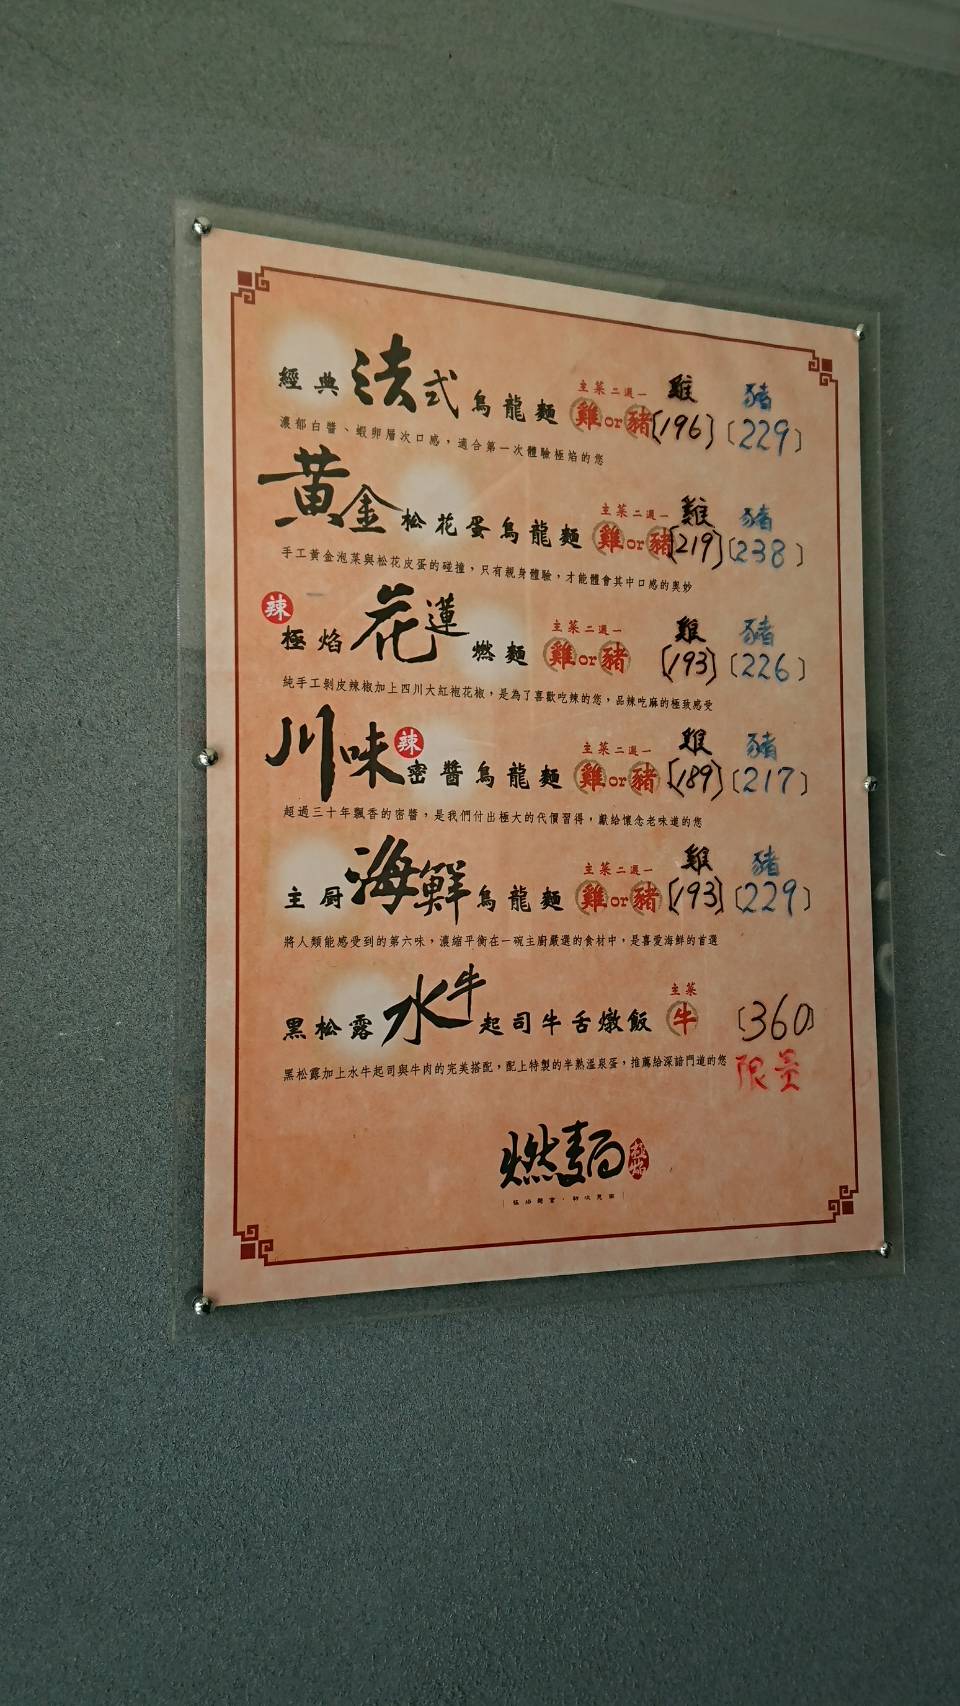 經典法式烏龍麵 主菜二選一 雞or豬 雞 [196] 豬 [229]
濃郁白醬、蝦卵層次口感，適合第一次體驗極焰的您
黃金松花蛋烏龍麵 主菜二選一 雞or豬 雞 [219] 豬 [238]
手工黃金泡菜與松花皮蛋的碰撞，只有親身體驗，才能體會其中口感的奧妙
辣 極焰花蓮燃麵 主菜二選一 雞or豬 雞 [193] 豬 [226]
純手工剝皮辣椒加上四川大紅袍花椒，是為了喜歡吃辣的您，品辣吃麻的極致感受
川味辣密醬烏龍麵 主菜二選一 雞or豬 雞 [189] 豬 [217]
超過三十年飄香的密醬，是我們付出極大的代價習得，獻給懷念老味道的您
主厨海鮮烏龍麵 主菜二選一 雞or豬 雞 [193] 豬 [229]
將人類能感受到的第六味，濃縮平衡在一碗主廚嚴選的食材中，是喜愛海鮮的首選
黑松露水牛起司牛舌燉飯 主菜 牛 [360]
黑松露加上水牛起司與牛肉的完美搭配，配上特製的半熟溫泉蛋，推薦給深諳門道的您 限量
燃麵 極焰